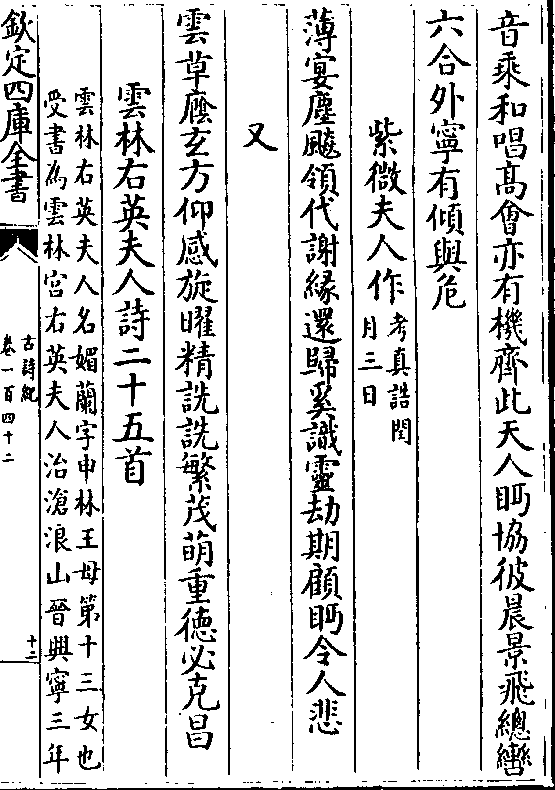 音乘和唱髙會亦有機齊此天人眄協彼晨景飛總轡
六合外寧有傾與危
紫微夫人作考真誥閏
月三日
薄宴塵飈領代謝縁還歸奚識靈劫期顧眄令人悲
又
雲草廕玄方仰感旋曜精詵詵繁茂萌重徳必克昌
雲林右英夫人詩二十五首
雲林右英夫人名媚蘭字申林王母第十三女也
受書為雲林宫右英夫人治滄浪山晉興寧三年
欽定四庫全書
古詩紀
卷一百四十二
十二